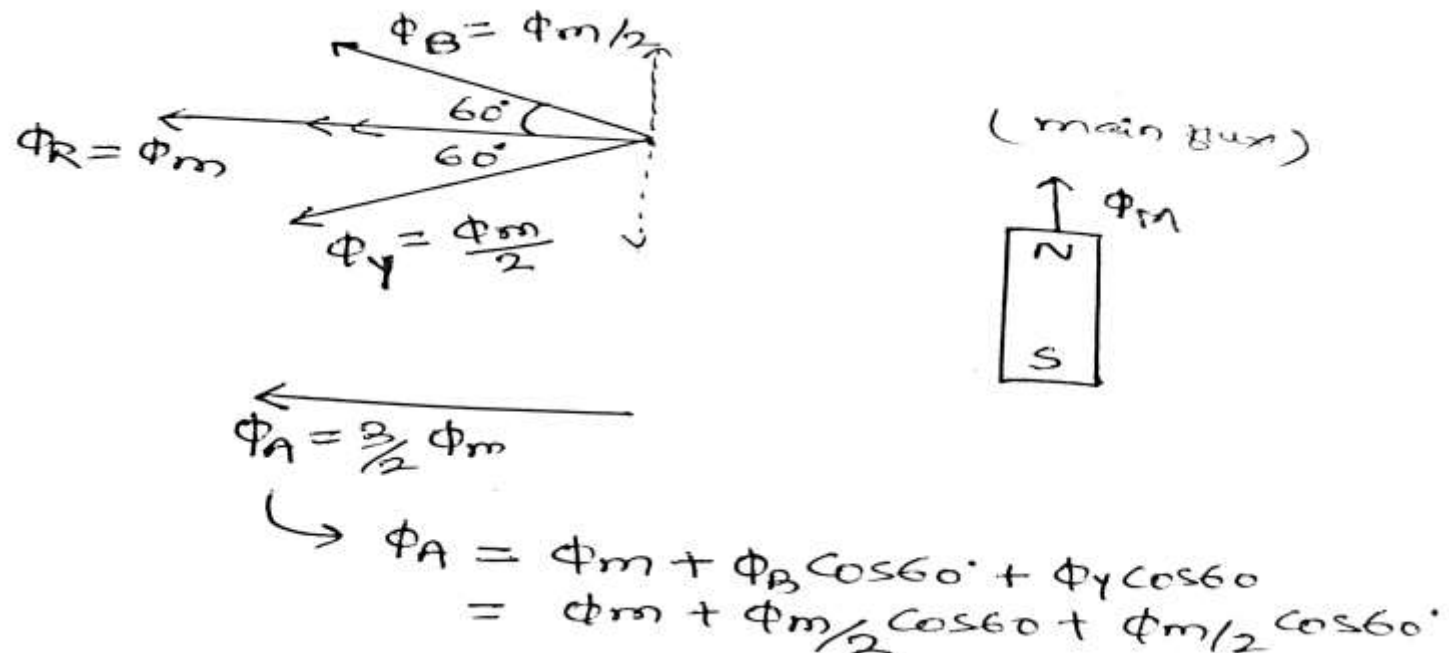 ΦB = Φm/2
60°
ΦR = Φm
60°
ΦY = Φm/2
(main flux)
ΦM
N
S
ΦA = 3/2 Φm
ΦA = Φm + ΦB Cos60° + ΦY Cos60
= Φm + Φm/2 Cos60 + Φm/2 Cos60°